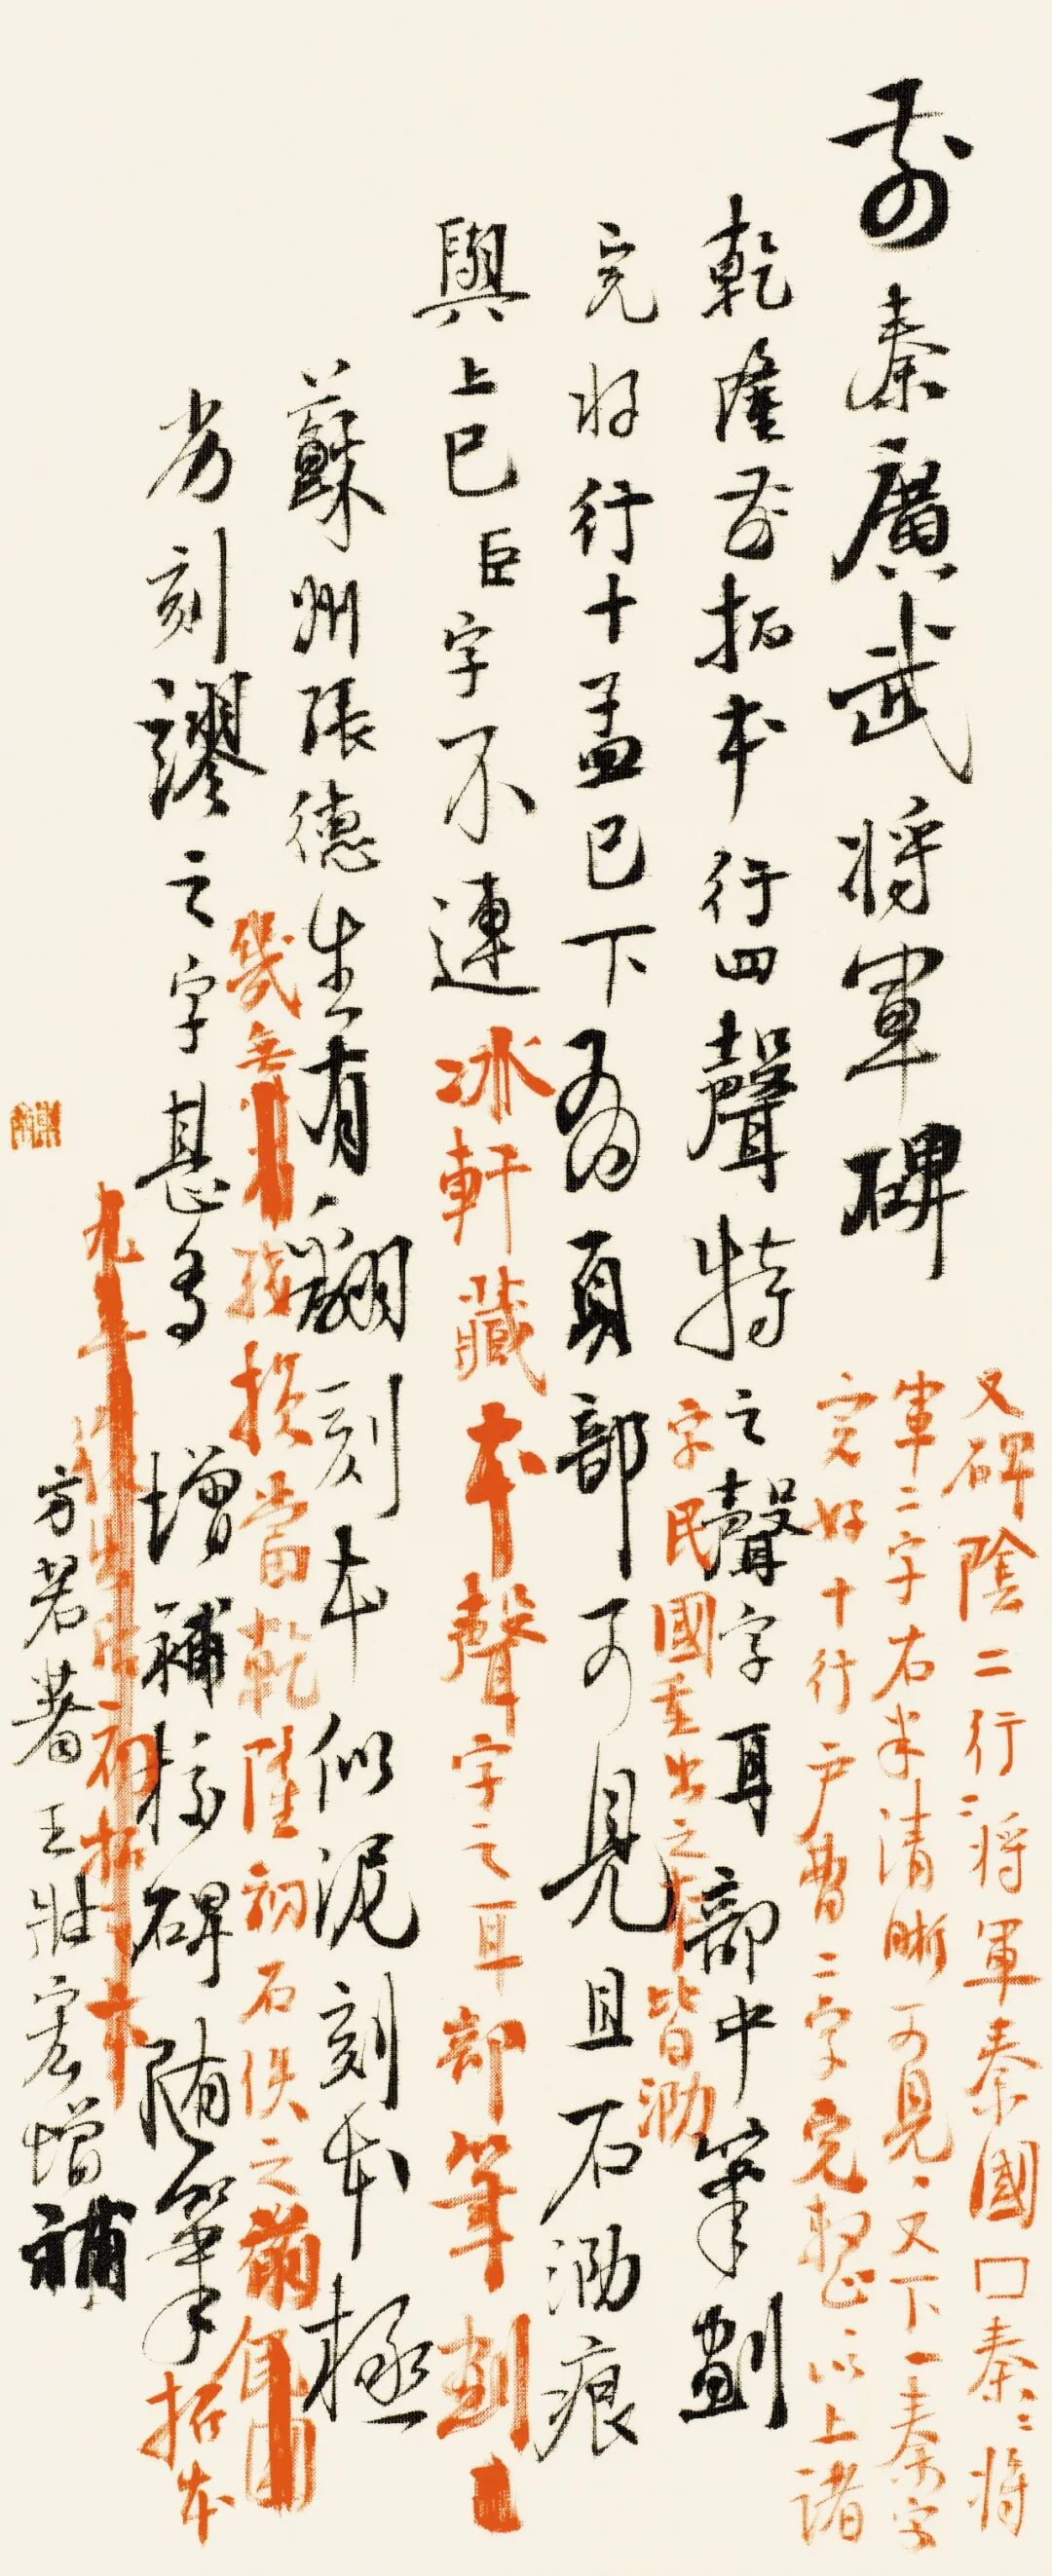 前秦廣武将軍碑
又碑陰二行将軍秦國口秦二将
軍二字右半清晰可見又下一秦字
完好十行户曹二字完整以上諸
字民國重出之本皆泐
乾隆前拓本行四聲特之聲字耳部中筆劃
完好行十孟已下為頁部可見且石泐痕
與上已臣字不連
冰軒藏本聲字之耳部筆劃
蘇州張德生有翻刻本似泥刻本極
幾無損當乾隆初石佚之前
劣刻謬之字甚多
拓本
初拓本
增補校碑随筆
方若著王壯宏增補